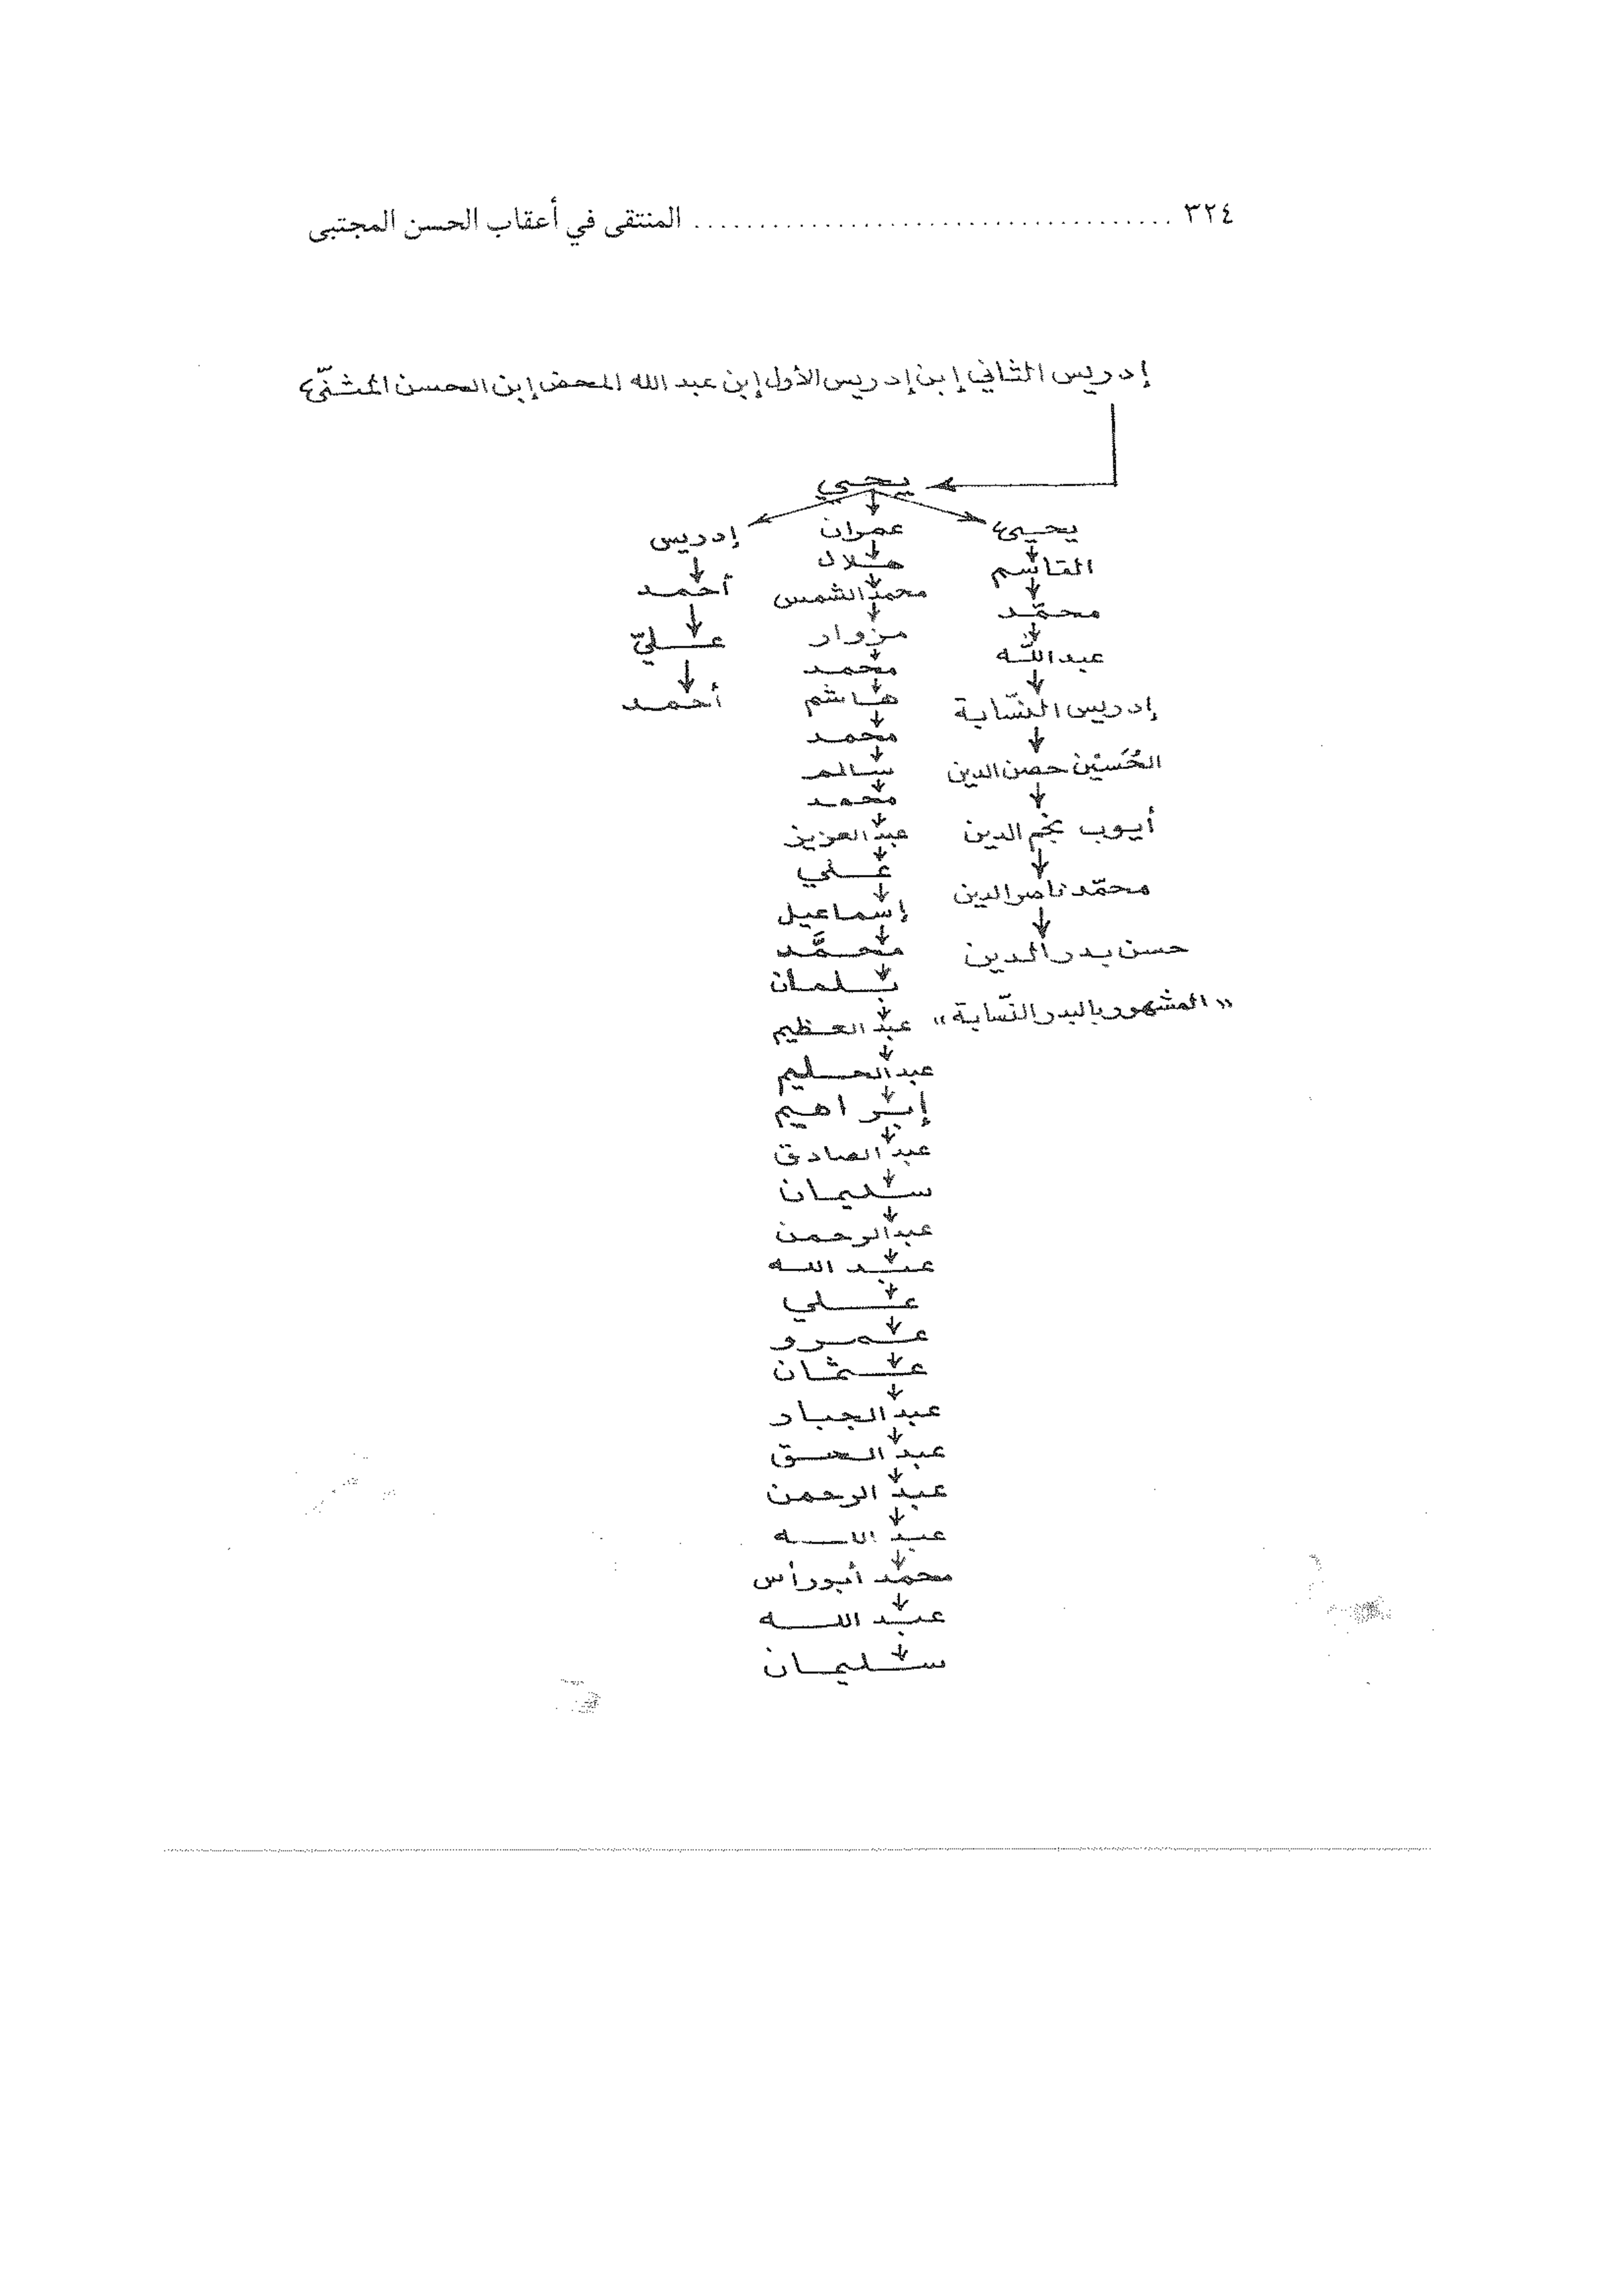 ٣٢٤ ........................................ المنتقى في أعقاب الحسن المجتبى
إدريس الثاني إبن إدريس الأول إبن عبد الله المحض إبن الحسن المثنّى
يحيي
يحيى
القاسم
محمّد
عبد اللّه
إدريس النسّابة
الحُسَيْن حصن الدين
أيوب نجم الدين
محمّد ناصر الدين
حسن بدر الدين
«المشهور بالبدر النسّابة»
عمران
هلال
محمد الشمس
مزوار
محمد
هاشم
محمد
سالم
محمد
عبد العزيز
علي
إسماعيل
محمَّد
عبد العظيم
عبد الحليم
إبراهيم
عبد الصادق
سليمان
عبد الرحمن
عبد الله
علي
عمرو
عثمان
عبد الجبار
عبد الحق
عبد الرحمن
عبد الله
محمد أبو رأس
عبد الله
سليمان
إدريس
أحمد
عليّ
أحمد